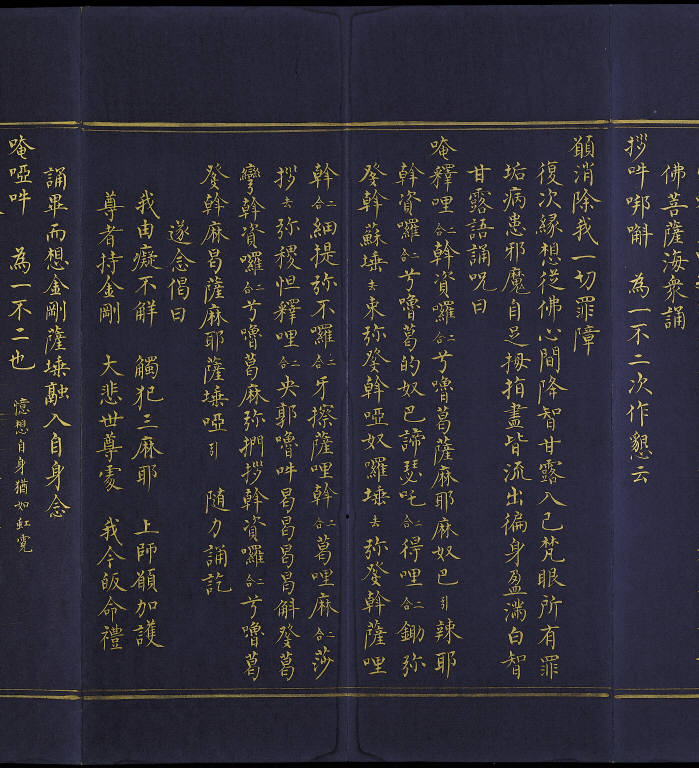 佛菩薩海衆誦
拶吽㖮斛 為一不二次作懇云
願消除我一切罪障
復次緣想從佛心間降智甘露入已梵眼所有罪
垢病患邪魔自足拇指盡皆流出徧身盈滿白智
甘露語誦咒曰
唵釋哩二合斡資囉二合兮嚕葛薩麻耶麻奴巴引辣耶
斡資囉二合兮嚕葛的奴巴諦瑟吒二合得哩二合鋤弥
癹斡蘇埵去束弥癹斡啞奴囉埵去弥癹斡薩哩
斡二合細提弥不囉二合牙擦薩哩斡二合葛哩麻二合莎
拶去弥稷怛釋哩二合央郭嚕吽曷曷曷曷斛癹葛
彎斡資囉二合兮嚕葛麻弥捫拶斡資囉二合兮嚕葛
癹斡麻曷薩麻耶薩埵啞引 随力誦訖
遂念偈曰
我由癡不解 觸犯三麻耶 上師願加護
尊者持金剛 大悲世尊䖍 我今皈命禮
誦畢而想金剛薩埵融入自身念
唵啞吽 為一不二也 憶想自身猶如虹霓